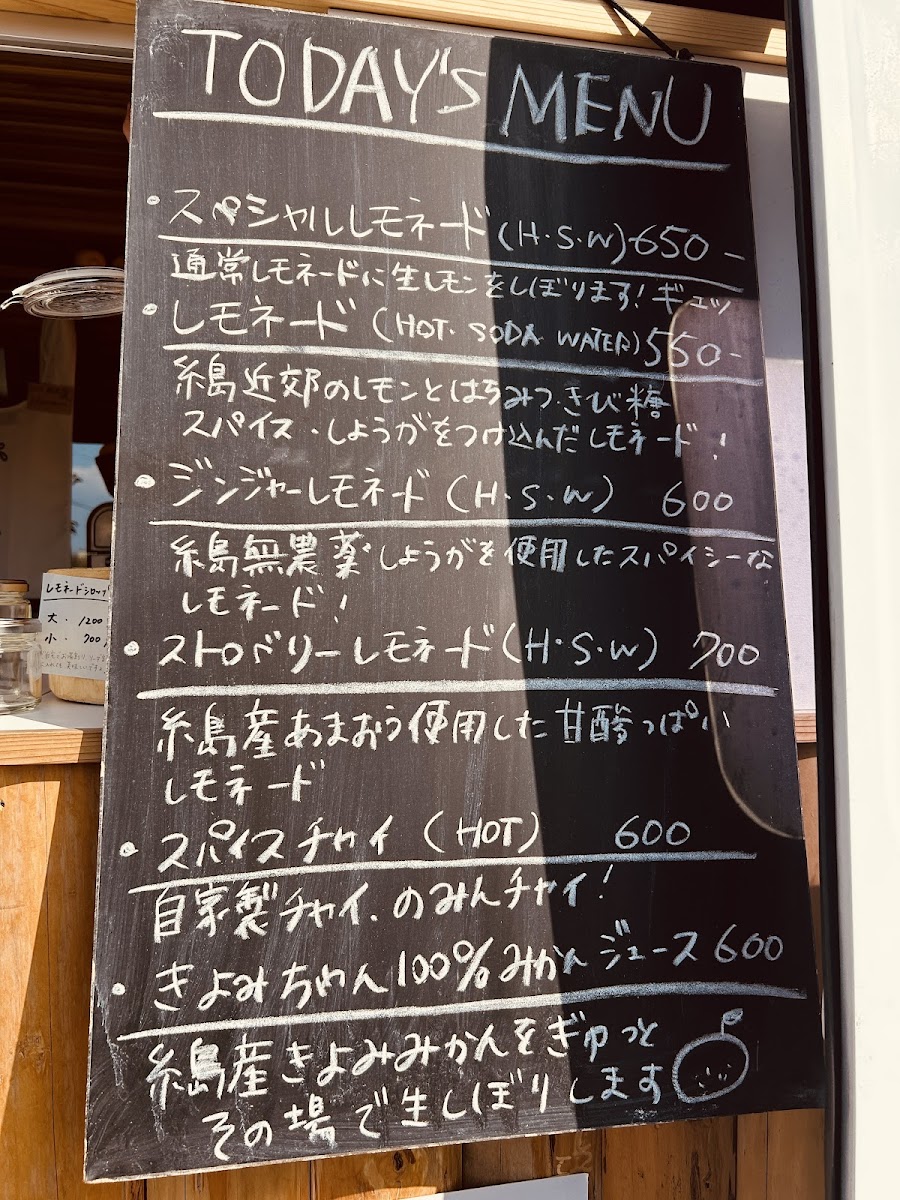 TODAY'S MENU
・スペシャルレモネード(H・S・W) 650-
通常レモネードに生レモンをしぼります！ギュッ
・レモネード (HOT・SODA WATER) 550-
糸島近郊のレモンとはちみつ・きび糖
スパイス・しょうがをつけ込んだレモネード！
・ジンジャーレモネード (H・S・W) 600
糸島無農薬しょうがを使用したスパイシーな
レモネード！
・ストロベリーレモネード(H・S・W) 700
糸島産あまおう使用した甘酸っぱい
レモネード
・スパイスチャイ (HOT) 600
自家製チャイ。のみんチャイ！
・きよみちゃん100%みかんジュース 600
糸島産きよみみかんをぎゅっと
その場で生しぼりします
レモネードシロップ
大・1200
小・700